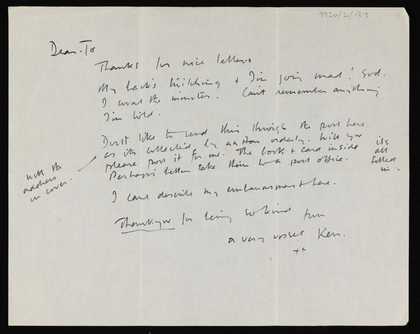 Dear To
Thanks for nice letters
My back's hitching & I'm goin mad! God.
I must the monster. Can't remember anything
I'm told.
Don't like to send this through the post here
as its collected by an orderly. Will you
please post it for me. The book & card inside
Perhaps better take them to a post office.
its all filled in.
with the address in cover.
I cant describe my embarrassment here.
Thankyou for being so kind
a very upset Ken.
xx